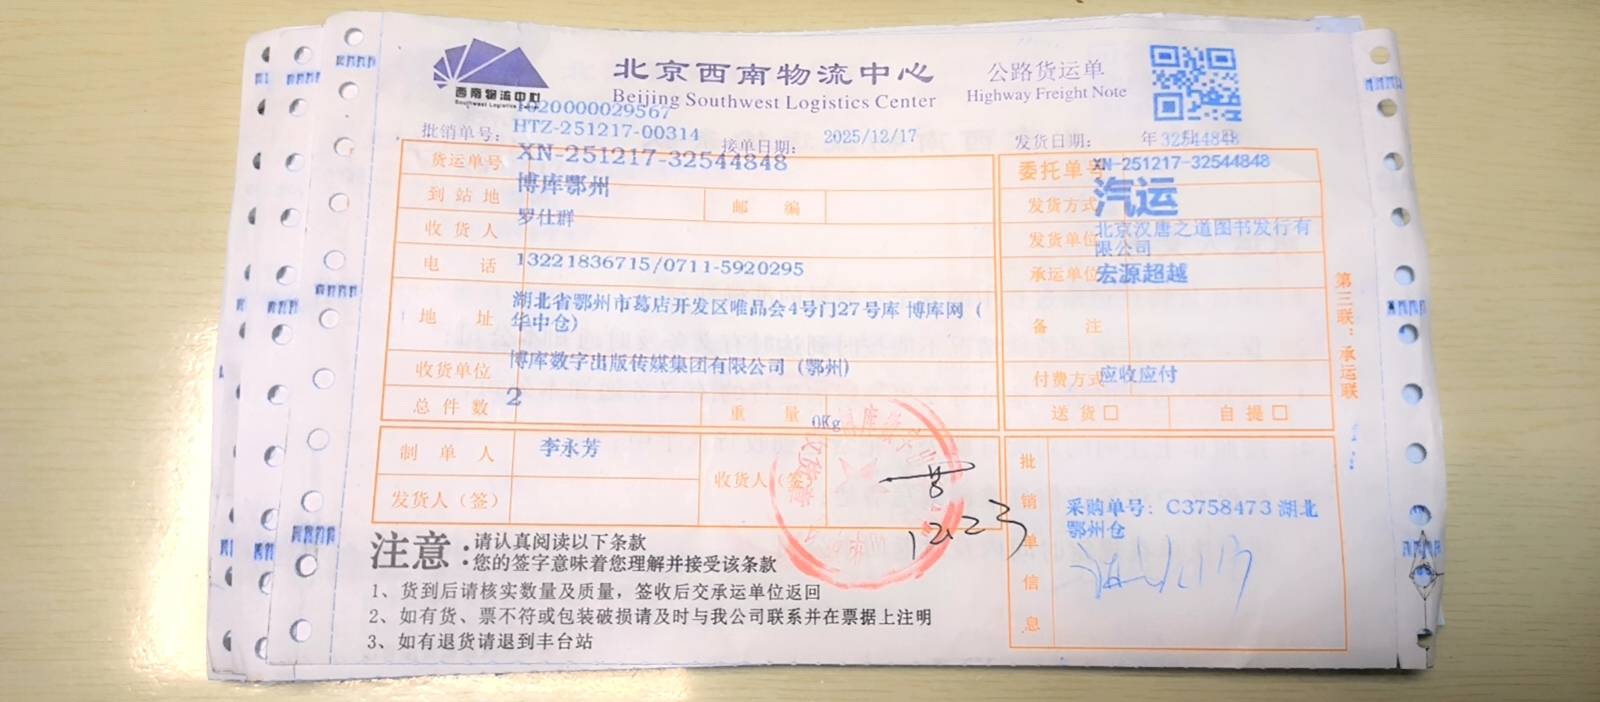 西南物流中心
Southwest Logistics
北京西南物流中心
Beijing Southwest Logistics Center
公路货运单
Highway Freight Note
1020000029567
批销单号: HTZ-251217-00314
接单日期: 2025/12/17
发货日期: 年 32544848
货运单号 XN-251217-32544848
委托单号 XN-251217-32544848
到站地 博库鄂州
邮编
发货方式 汽运
收货人 罗仕群
发货单位 北京汉唐之道图书发行有
限公司
电话 13221836715/0711-5920295
承运单位 宏源超越
地址 湖北省鄂州市葛店开发区唯品会4号门27号库 博库网(
华中仓)
备注
收货单位 博库数字出版传媒集团有限公司 (鄂州)
付费方式 应收应付
总件数 2
重量 0Kg
送货□ 自提□
制单人 李永芳
收货人(签)
发货人(签)
12.23
批销单信息
采购单号: C3758473 湖北
鄂州仓
第三联:承运联
注意:
请认真阅读以下条款
您的签字意味着您理解并接受该条款
1、货到后请核实数量及质量,签收后交承运单位返回
2、如有货、票不符或包装破损请及时与我公司联系并在票据上注明
3、如有退货请退到丰台站